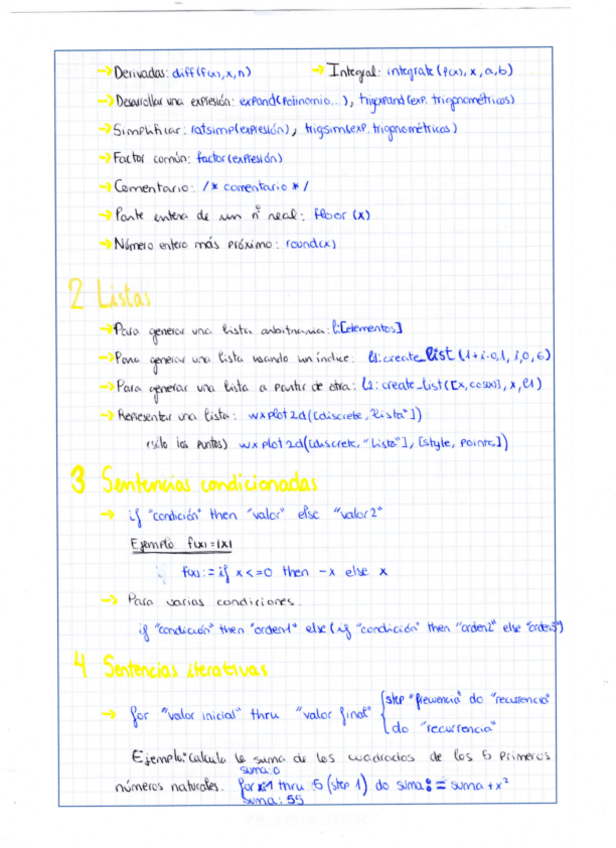 → Derivadas: diff(f(x),x,n) → Integral: integrate(f(x),x,a,b)
→ Desarrollar una expresión: expand(Polinomio...), trigexpand(exp. trigonométricas)
→ Simplificar: ratsimp(expresión), trigsim(exp. trigonométricas)
→ Factor común: factor(expresión)
→ Comentario: /* comentario */
→ Parte entera de un nº real: floor (x)
→ Número entero más próximo: round(x)
2 Listas
→ Para generar una lista arbitraria: l:[elementos]
→ Para generar una lista usando un índice: l1:create_list (1+i·0,1, i,0,6)
→ Para generar una lista a partir de otra: l2: create_list([x,cos(x)], x, l1)
→ Representar una lista: wxplot2d([discrete, "lista"])
(sólo los puntos) wxplot2d([discrete, "Lista"], [style, points])
3 Sentencias condicionadas
→ if "condición" then "valor" else "valor2"
Ejemplo f(x)=|x|
f(x):= if x<=0 then -x else x
→ Para varias condiciones.
if "condición" then "orden1" else (if "condición" then "orden2" else "orden3")
4 Sentencias iterativas
→ for "valor inicial" thru "valor final" { step "frecuencia" do "recurrencia"
do "recurrencia"
Ejemplo: calcula la suma de los cuadrados de los 5 primeros
suma:0
números naturales. for x:1 thru 5 (step 1) do suma:= suma + x²
suma: 55